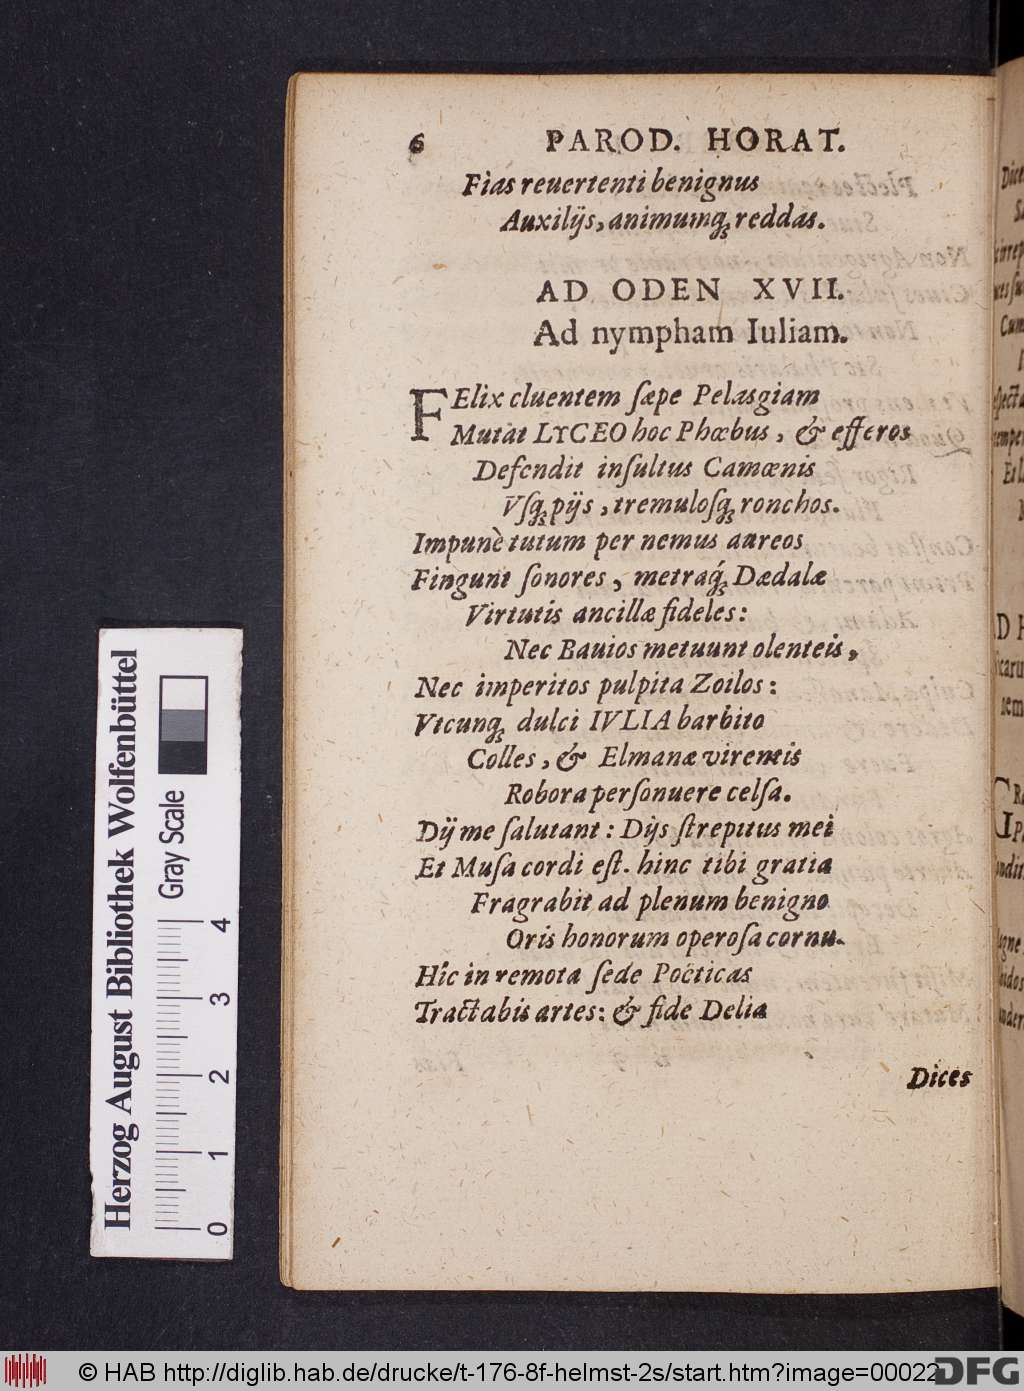 6 PAROD. HORAT.
Fias reuertenti benignus
Auxilijs, animumq́ꝫ reddas.
AD ODEN XVII.
Ad nympham Iuliam.
FElix cluentem ſæpe Pelasgiam
Mutat LYCEO hoc Phœbus, & efferos
Defendit inſultus Camœnis
Vſqꝫ pijs, tremuloſqꝫ ronchos.
Impunè tutum per nemus aureos
Fingunt ſonores, metraq́ꝫ Dædalæ
Virtutis ancillæ fideles:
Nec Bauios metuunt olenteis,
Nec imperitos pulpita Zoilos:
Vtcunqꝫ dulci IVLIA barbito
Colles, & Elmanæ virentis
Robora perſonuere celſa.
Dij me ſalutant: Dijs ſtrepitus mei
Et Muſa cordi eſt. hinc tibi gratia
Fragrabit ad plenum benigno
Oris honorum operoſa cornu.
Hîc in remota ſede Poëticas
Tractabis artes: & fide Delia
Dices
Herzog August Bibliothek Wolfenbüttel
Gray Scale
0 1 2 3 4
© HAB http://diglib.hab.de/drucke/t-176-8f-helmst-2s/start.htm?image=00022
DFG